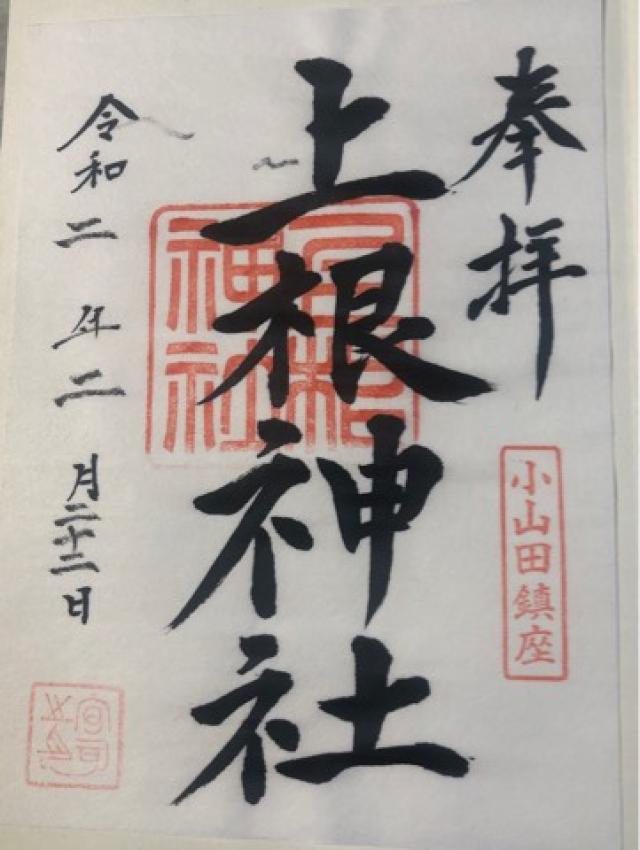 奉拝
小山田鎮座
上根神社
上根
神社
令和二年二月二十二日